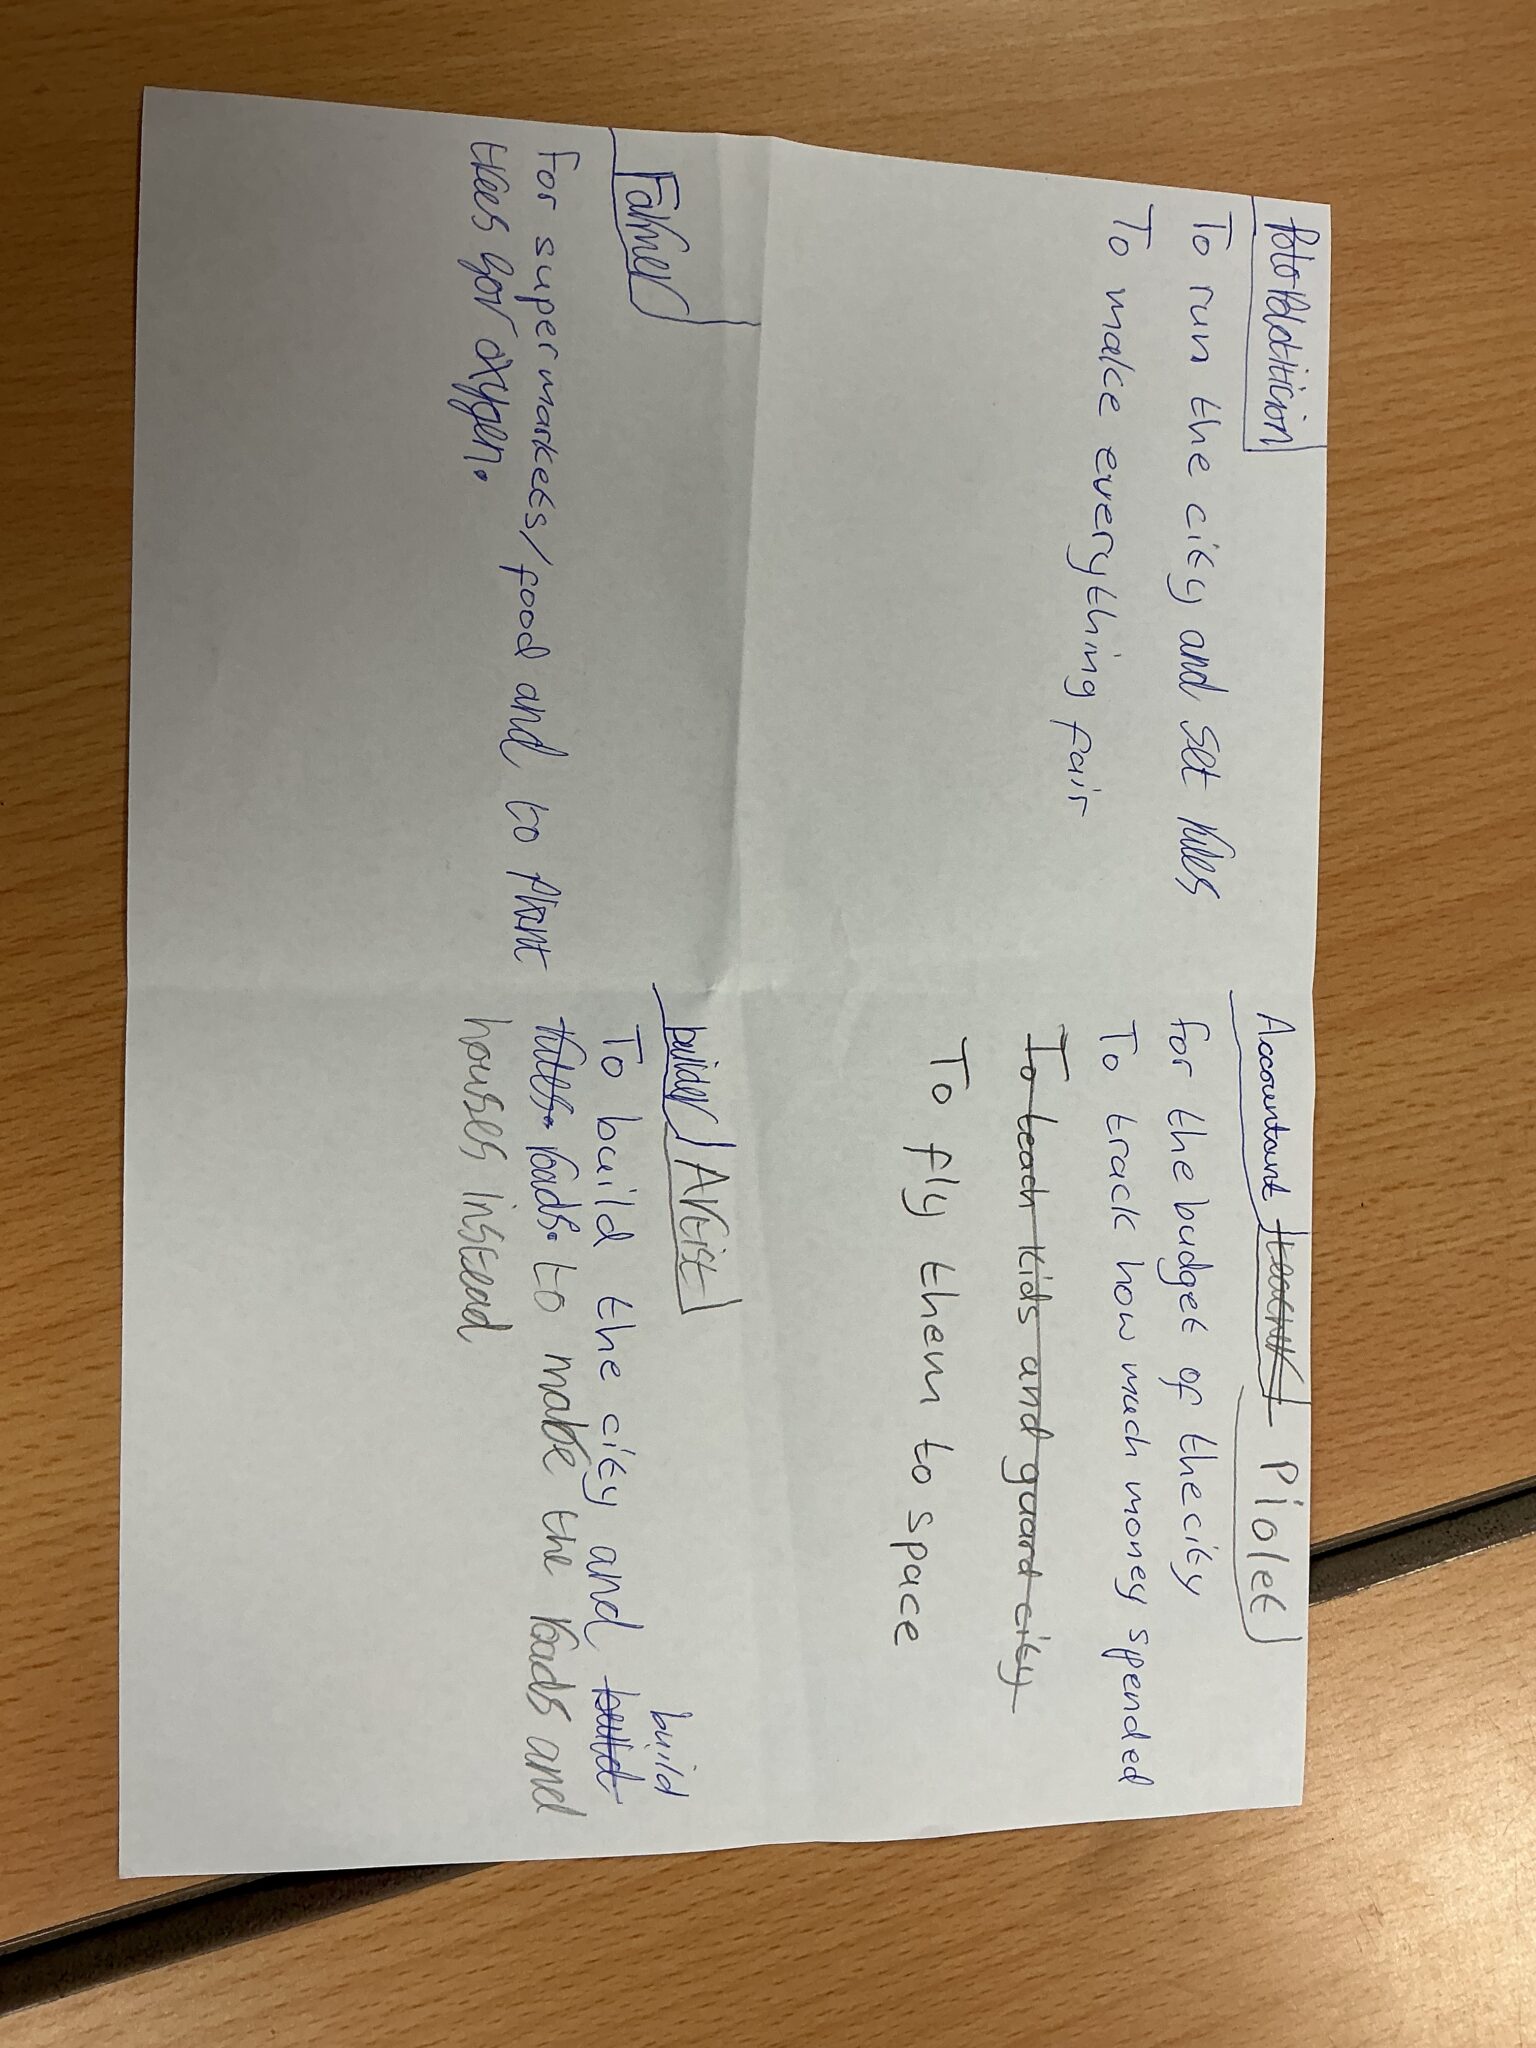 Politicion
To run the city and set rules
To make everything fair
Accountant teacher Piolet
for the budget of the city
To track how much money spended
To teach kids and guard city
To fly them to space
Farmer
For supermarkets/food and to plant
trees for oxygen.
builder Artist
build
To build the city and build
roads. to make the roads and
houses instead